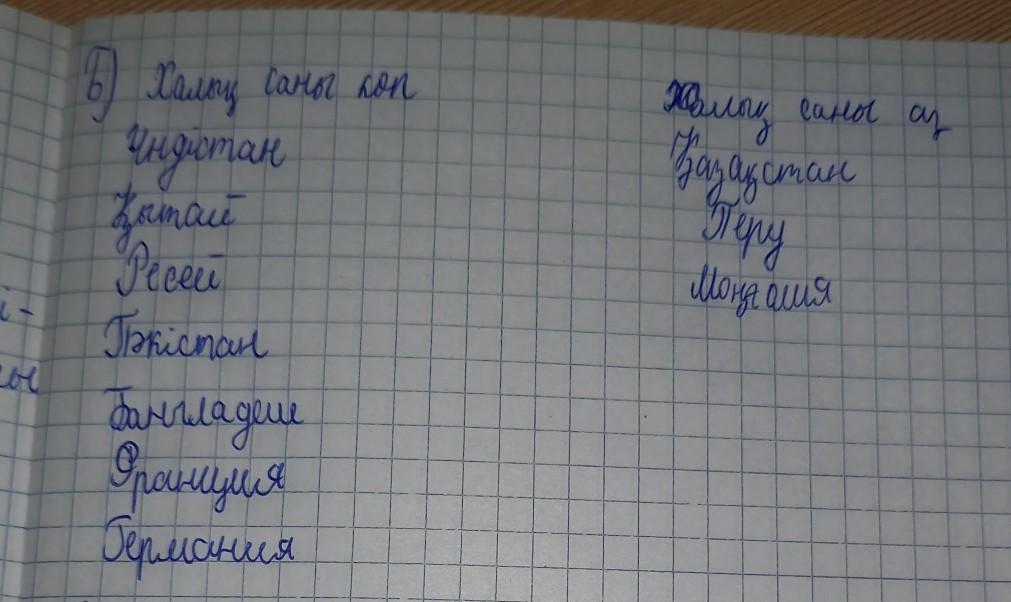 Б) Халық саны көп
Үндістан
Қытай
Ресей
Пәкістан
Бангладеш
Франция
Германия
Халық саны аз
Қазақстан
Перу
Моңғолия